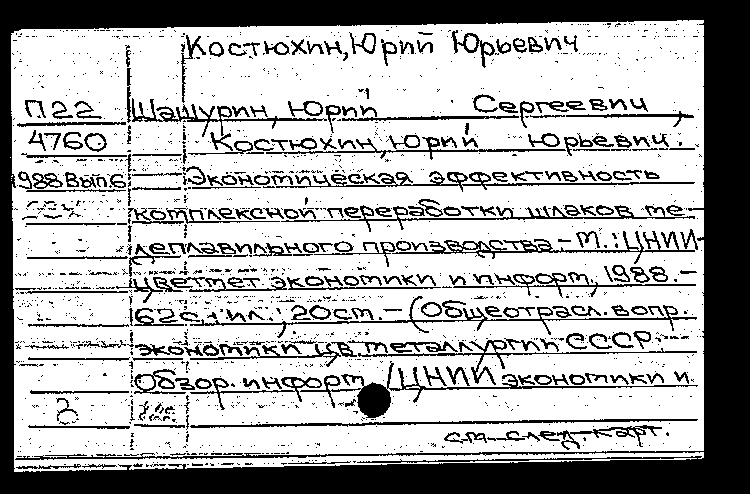 Костюхин, Юрий Юрьевич
П22 Шашурин, Юрий Сергеевич,
4760 Костюхин, Юрий Юрьевич.
1988 Вып.6 Экономическая эффективность
комплексной переработки шлаков ме-
деплавильного производства.-М.: ЦНИИ-
цветмет экономики и информ., 1988.-
62с.: ил.; 20см.-(Общеотрасл. вопр.
экономики цв. металлургии СССР:
Обзор. информ. / ЦНИИ экономики и
см. след. карт.